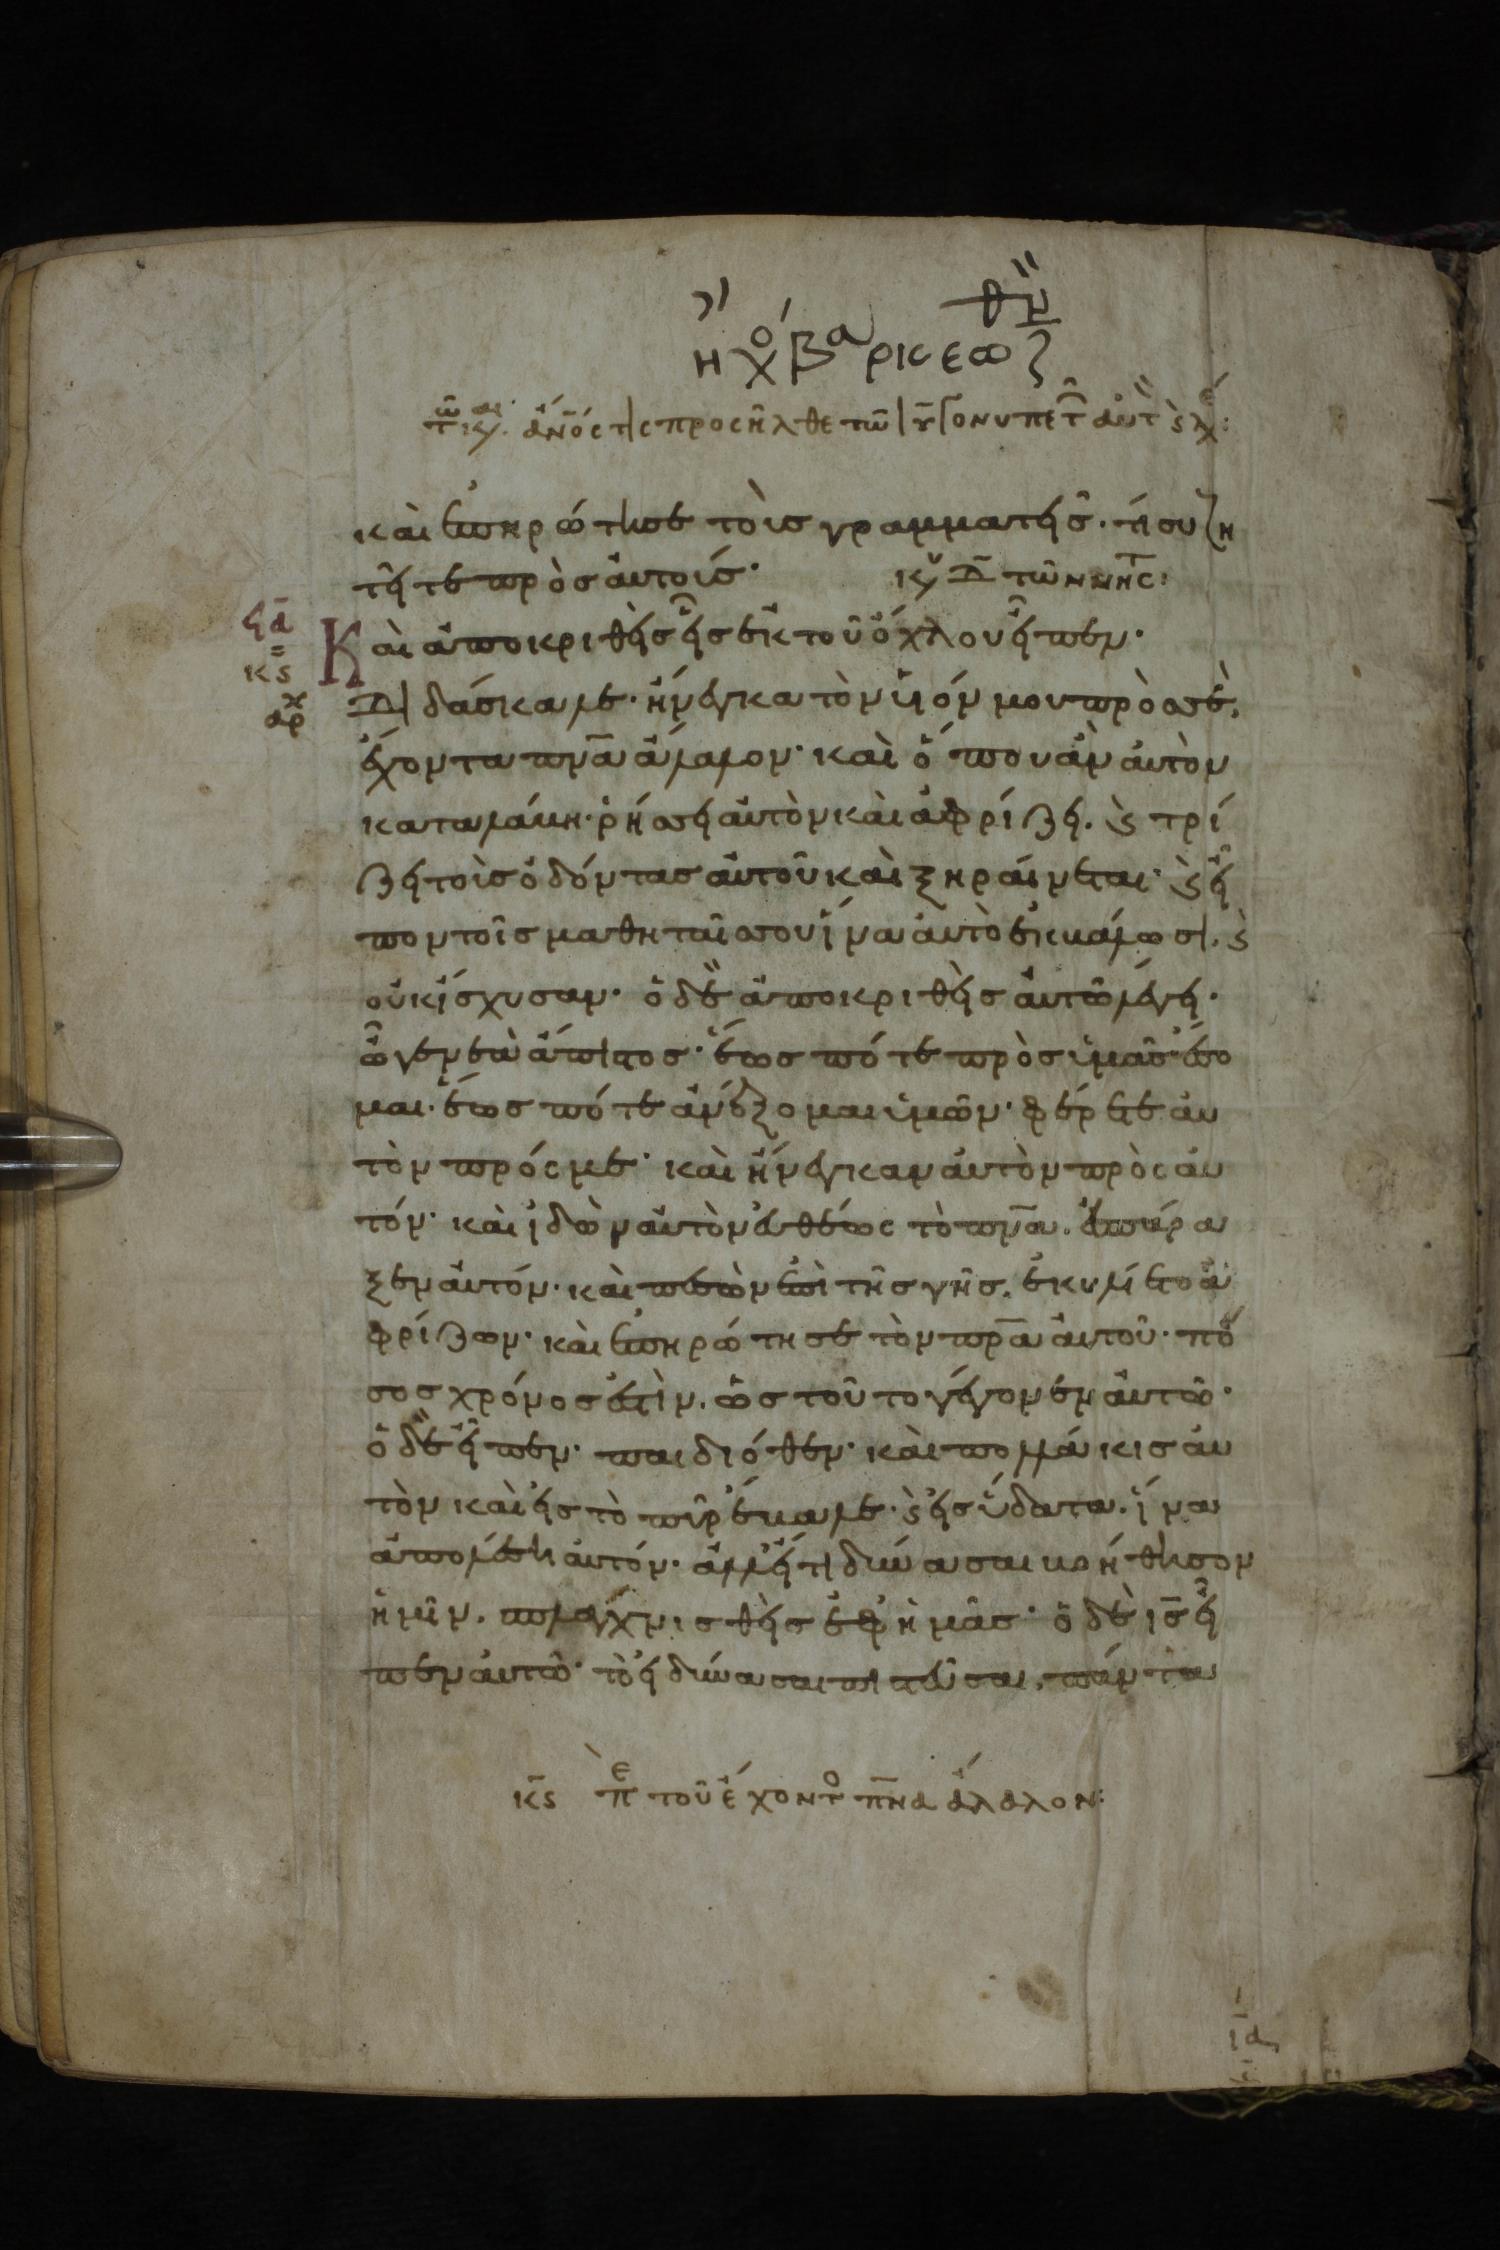 ἦχο βαρικεως
τῶ και. ἄνο̅ς τις προσῆλθε τῶ ιυ̅ γονυπετ αυτ κ λ:
και ἐπηρώτησε τοὺς γραμματεῖσ. τί συζη
τεῖτε πρὸσ αὐτούσ. κυ Δ̅ τῶν νηστ:
ϟα̅
Καὶ ἀποκριθεὶσ εἷσ ἐκ τοῦ ὄχλου εἶπεν.
κϛ
αρχ
Διδάσκαλε. ἤνεγκα τὸν υἱόν μου πρὸσ σέ.
ἔχοντα πνα̅ ἄλαλον. καὶ ὅπου ἂν αὐτὸν
καταλάβη. ῥήσσει αὐτὸν καὶ ἀφρίζει. ϗ τρί
ζει τοὺσ ὀδόντασ αὐτοῦ καὶ ξηραίνεται. ϗ εἶ
πον τοῖσ μαθηταῖσ σου ἵνα αὐτὸ ἐκβάλωσι. ϗ
οὐκ ἴσχυσαν. ὁ δὲ ἀποκριθεὶσ αὐτῶ λέγει.
ὦ γενεὰ ἄπιστοσ. ἕωσ πότε πρὸσ ὑμᾶσ ἔσο
μαι. ἕωσ πότε ἀνέξομαι ὑμῶν. φέρετε αὐ
τὸν πρόσ με. καὶ ἤνεγκαν αὐτὸν πρὸσ αὐ
τόν. καὶ ἰδὼν αὐτὸν εὐθέωσ τὸ πνα̅. ἐσπάρα
ξεν αὐτόν. καὶ πεσὼν ἐπὶ τῆσ γῆσ. ἐκυλίετο ἀ
φρίζων. καὶ ἐπηρώτησε τὸν πρα̅ αὐτοῦ. πό
σοσ χρόνοσ ἐστὶν. ὡσ τοῦτο γέγονεν αὐτῶ.
ὁ δὲ εἶπεν. παιδιόθεν. καὶ πολλάκισ αὐ
τὸν καὶ εἰσ τὸ πῦρ ἔβαλε. ϗ εἰσ ὕδατα. ἵνα
ἀπολέση αὐτόν. ἀλλ᾽ εἴ τι δύνασαι βοήθησον
ἡμῖν. σπλαγχνισθεὶσ ἐφ ἡμᾶσ. ὁ δὲ ισ̅ εἶ
πεν αὐτῶ. τὸ εἰ δύνασαι πιστεῦσαι. πάντα
κϛ̅ πε τοῦ ἔχοντο πνα̅ ἄλαλον: